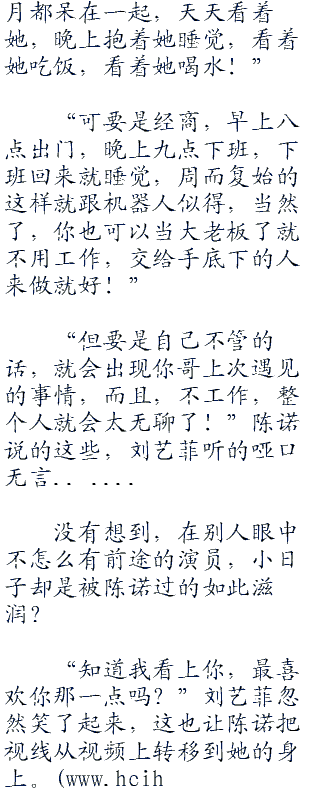 月都呆在一起，天天看着
她，晚上抱着她睡觉，看着
她吃饭，看着她喝水！”
“可要是经商，早上八
点出门，晚上九点下班，下
班回来就睡觉，周而复始的
这样就跟机器人似得，当然
了，你也可以当大老板了就
不用工作，交给手底下的人
来做就好！”
“但要是自己不管的
话，就会出现你哥上次遇见
的事情，而且，不工作，整
个人就会太无聊了！”陈诺
说的这些，刘艺菲听的哑口
无言．．．．．．
没有想到，在别人眼中
不怎么有前途的演员，小日
子却是被陈诺过的如此滋
润？
“知道我看上你，最喜
欢你那一点吗？”刘艺菲忽
然笑了起来，这也让陈诺把
视线从视频上转移到她的身
上。(www.hcih